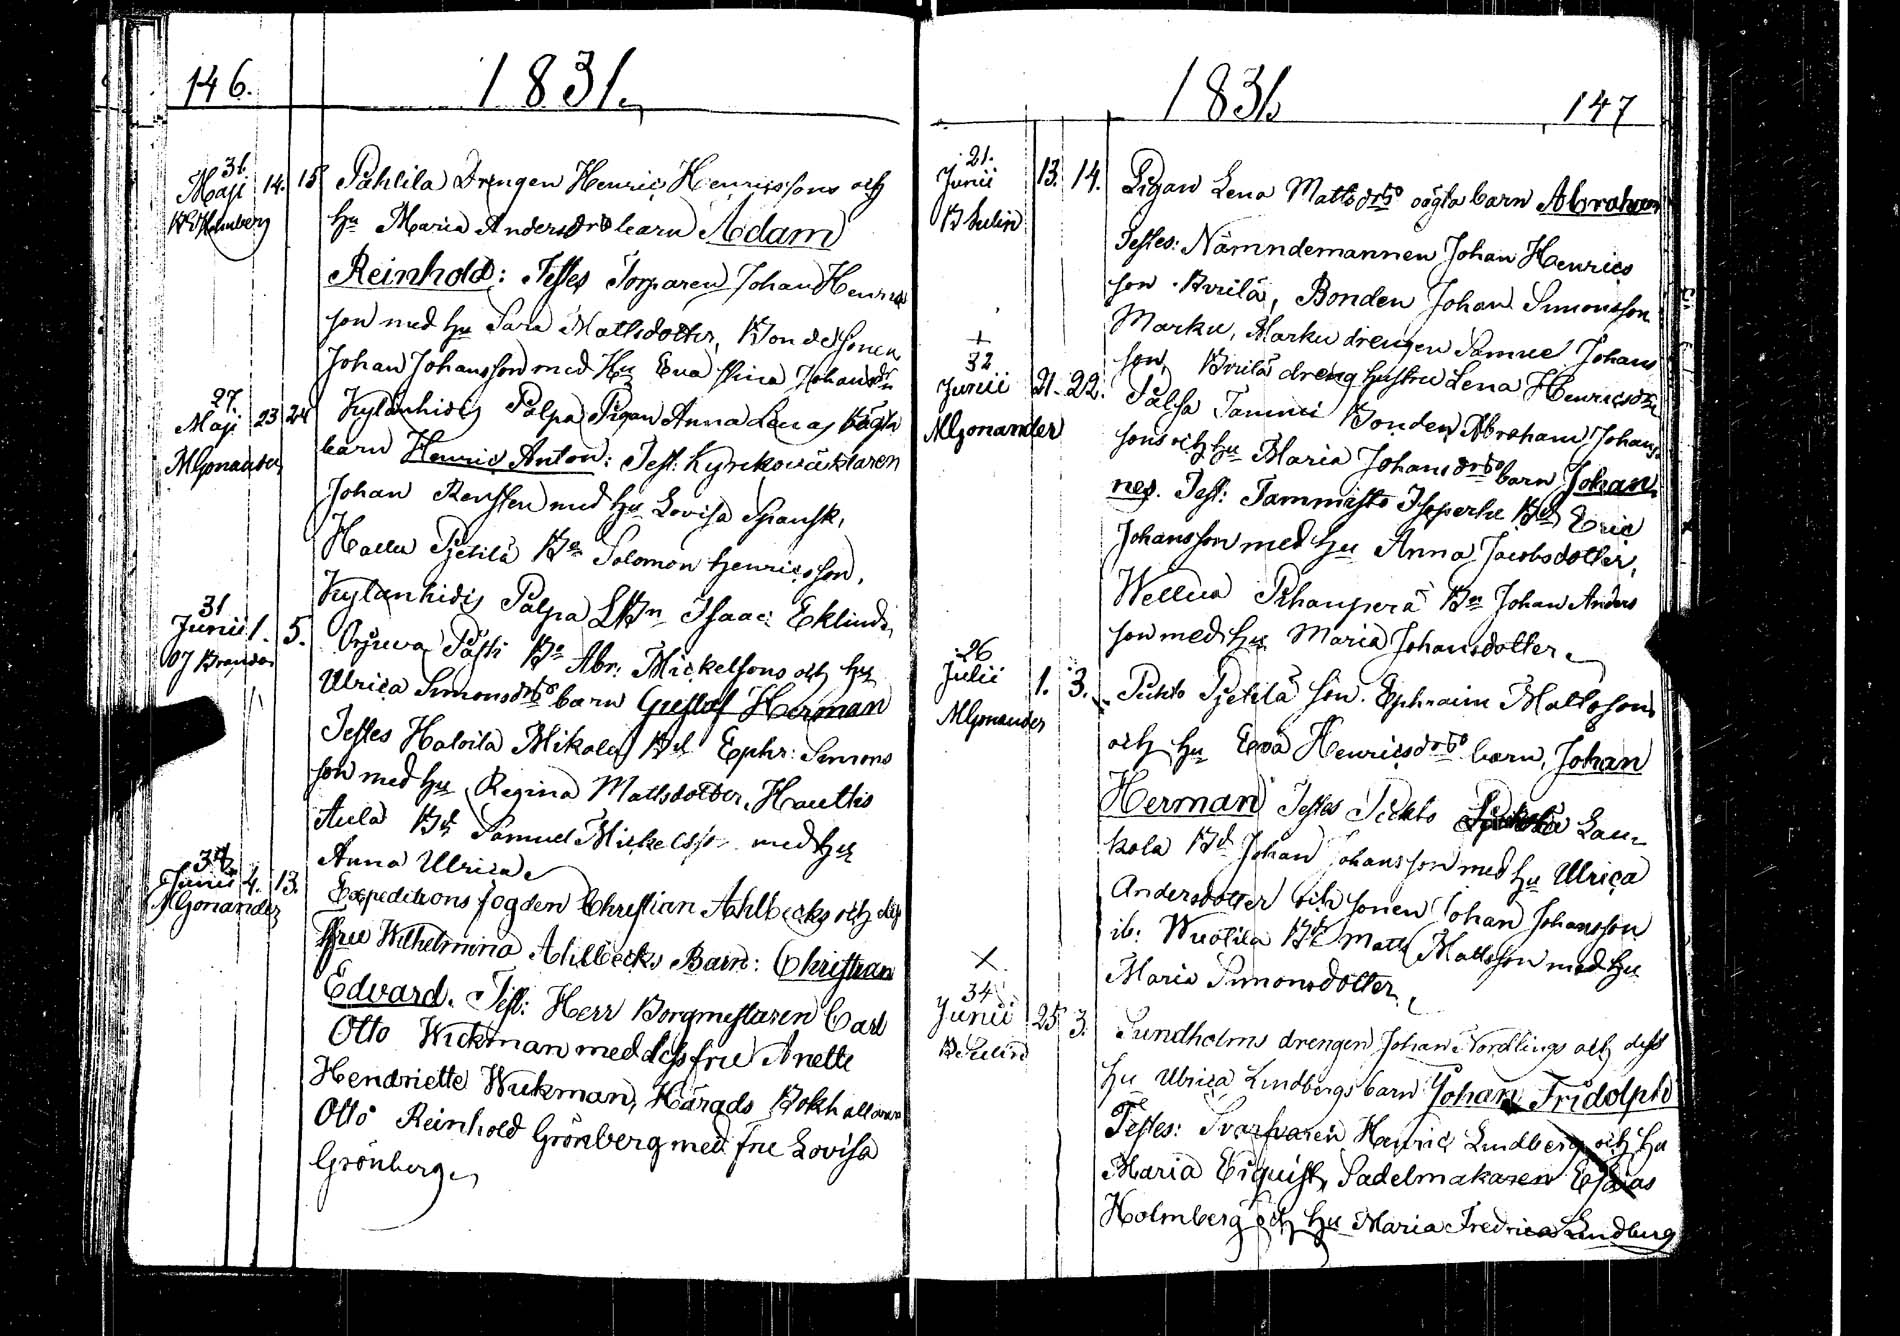 146.
1831.
31.
Maji 14. 15
Påhlila Drengen Henric Henricssons och
hu Maria Andersdrs barn Adam
Reinhold: Testes Torparen Johan Henrics
son med hu Sara Mattsdotter, Bondesonen
Johan Johansson med Hu Eva Stina Johansdr
27.
Maji 23 24
MGonander
Kylänhidis Palpa Pigan Anna Lenas oägta
barn Henric Anton: Test: Kyrckoväktaren
Johan med hu Lovisa Spansk,
Hallu Pietilä Bn Solomon Henricsson,
Kylänhidis Palpa Isaac Eklund
31
Junii 1. 5.
Påsti Bn Abr: Mickelsons och hu
Ulrica Simonsdrs barn Gustaf Herman
Testes Haloila Mikola Bd Ephr: Simons
son med hu Regina Mattsdotter, Hauttis
Aula Bd Samuel Mickelss: med hu
Anna Ulrica
34
Junii 4. 13.
MGonander
Expeditions fogden Christian Ahlbecks och dess
fru Wilhelmina Ahlbecks Barn: Christian
Edvard. Test: Herr Borgmestaren Carl
Otto Wickman med dess fru Anette
Hendriette Wickman, Härads Bokhallaren
Otto Reinhold Grönberg med fru Lovisa
Grönberg
1831.
147
21.
Junii 13. 14.
Pigan Lena Mattsdrs oägta barn Abraham
Testes: Nämndemannen Johan Henrics
son Kvilä, Bonden Johan Simonsson
Marku, Marku drengen Samuel Johans
son, Kvilä dreng hustru Lena Henricsdr
+
32
Junii 21. 22.
MGonander
Palsa Tammi Bonden Abraham Johans
sons och hu Maria Johansdrs barn Johan
nes. Test: Tammisto Isoperhe Bd Eric
Johansson med hu Anna Jacobsdotter,
Wellua Rhauperä Bn Johan Anders
son med hu Maria Johansdotter
26
Julii 1. 3.
MGonander
Pukto Pietilä son Ephraim Mattssons
och hu Eva Henricsdrs barn, Johan
Herman Testes Lau
kola Bd Johan Johansson med hu Ulrica
Andersdotter och sonen Johan Johansson
ib: Wuolila Bd Matts Mattsson med hu
Maria Simonsdotter
X
34
Junii 25 3.
Sundholms drengen Johan Nordlings och dess
hu Ulrica Lindbergs barn Johan Fridolph
Testes: Svarfvaren Henric Lindberg och hu
Maria Eriquist, Sadelmakaren Esaias
Holmberg och hu Maria Fredrica Lindberg